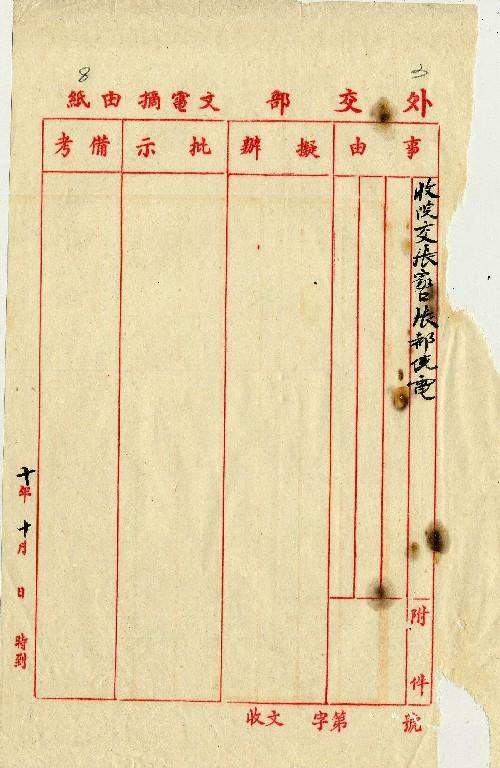 8
外交部文電摘由紙
事由
擬辦
批示
備考
收院交張家口張都統電
附件
十年十月 日 時到
收文 字第 號